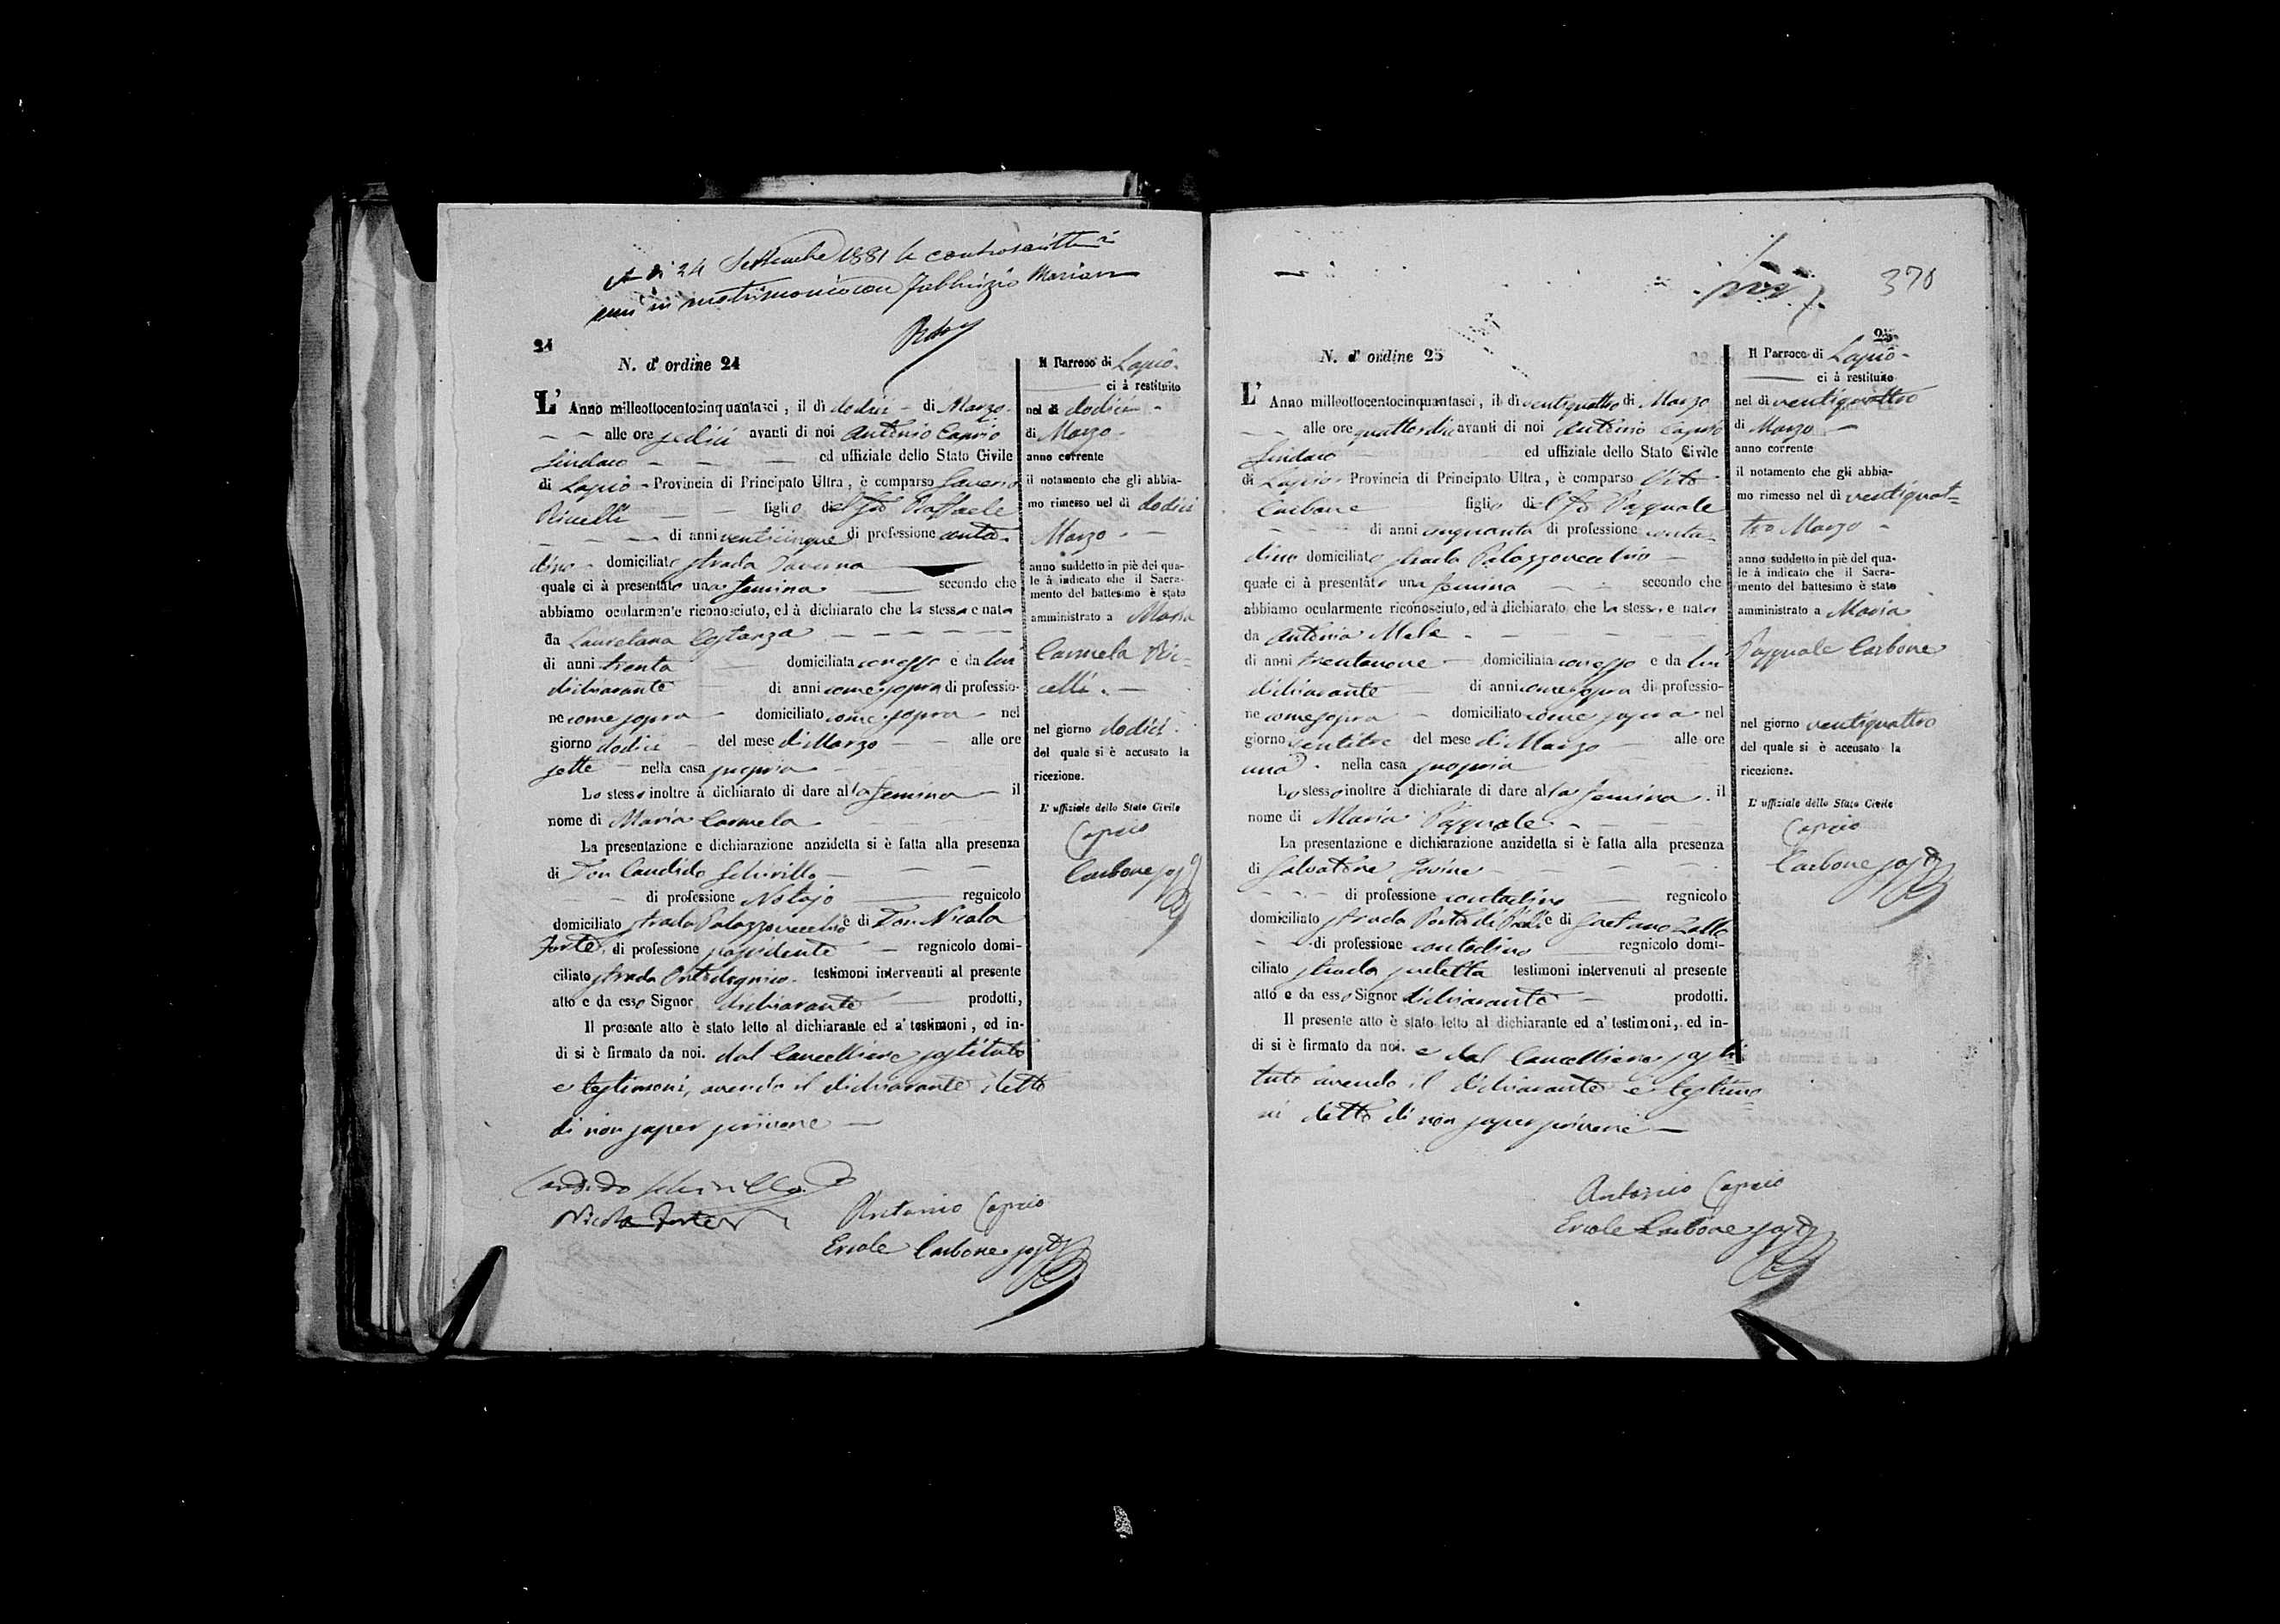 A dì 24 Settembre 1881 la controscritta si
unì in matrimonio con Fabbrizio Marian
24
N. d'ordine 24
L'Anno milleottocentocinquantasei, il dì dodici di Marzo
alle ore sedici avanti di noi Antonio Caprio
Sindaco ed uffiziale dello Stato Civile
di Lapio Provincia di Principato Ultra, è comparso Saverio
Ricelli figlio del fu Raffaele
di anni venticinque di professione conta-
dino domiciliato strada Taverna
quale ci à presentato una femina secondo che
abbiamo ocularmente riconosciuto, ed à dichiarato che la stessa e nata
da Lauretana Costanza
di anni trenta domiciliata con esso e da lui
dichiarante di anni come sopra di professio-
ne come sopra domiciliato come sopra nel
giorno dodici del mese di Marzo alle ore
sette nella casa propria
Lo stesso inoltre à dichiarato di dare alla femina il
nome di Maria Carmela
La presentazione e dichiarazione anzidetta si è fatta alla presenza
di Don Candido Schirillo
di professione Notajo regnicolo
domiciliato strada Palazzovecchio e di Don Nicola
Forte, di professione possidente regnicolo domi-
ciliato strada testimoni intervenuti al presente
atto e da esso Signor dichiarante prodotti,
Il presente atto è stato letto al dichiarante ed a' testimoni, ed in-
di si è firmato da noi. dal Cancelliere sostituto
e testimoni, avendo il dichiarante detto
di non saper scrivere
Candido Schirillo
Nicola Forte
Antonio Caprio
Ercole Carbone sost
Il Parroco di Lapio
ci à restituito
nel dì dodici
di Marzo
anno corrente
il notamento che gli abbia-
mo rimesso nel dì dodici
Marzo
anno suddetto in piè del qua-
le à indicato che il Sacra-
mento del battesimo è stato
amministrato a Maria
Carmela Ric-
celli
nel giorno dodici
del quale si è accusato la
ricezione.
L'uffiziale dello Stato Civile
Caprio
Carbone sost
370
25
N. d'ordine 25
L'Anno milleottocentocinquantasei, il dì ventiquattro di Marzo
alle ore quattordici avanti di noi Antonio Caprio
Sindaco ed uffiziale dello Stato Civile
di Lapio Provincia di Principato Ultra, è comparso Vito
Carbone figlio del fu Pasquale
di anni cinquanta di professione conta-
dino domiciliato strada Palazzovecchio
quale ci à presentato una femina secondo che
abbiamo ocularmente riconosciuto, ed à dichiarato che la stessa e nata
da Antonia Mele
di anni trentanove domiciliata con esso e da lui
dichiarante di anni come sopra di professio-
ne come sopra domiciliato come sopra nel
giorno ventitre del mese di Marzo alle ore
una nella casa propria
Lo stesso inoltre à dichiarato di dare alla femina il
nome di Maria Pasquale
La presentazione e dichiarazione anzidetta si è fatta alla presenza
di Salvatore Iovine
di professione contadino regnicolo
domiciliato strada Porta di e di Gaetano Zollo
di professione contadino regnicolo domi-
ciliato strada sudetta testimoni intervenuti al presente
atto e da esso Signor dichiarante prodotti.
Il presente atto è stato letto al dichiarante ed a' testimoni, ed in-
di si è firmato da noi. e dal Cancelliere sosti-
tuto avendo il dichiarante e testimo=
ni detto di non saper scrivere
Antonio Caprio
Ercole Carbone sost
Il Parroco di Lapio
ci à restituito
nel dì ventiquattro
di Marzo
anno corrente
il notamento che gli abbia-
mo rimesso nel dì ventiquat=
tro Marzo
anno suddetto in piè del qua-
le à indicato che il Sacra-
mento del battesimo è stato
amministrato a Maria
Pasquale Carbone
nel giorno ventiquattro
del quale si è accusato la
ricezione.
L'uffiziale dello Stato Civile
Caprio
Carbone sost